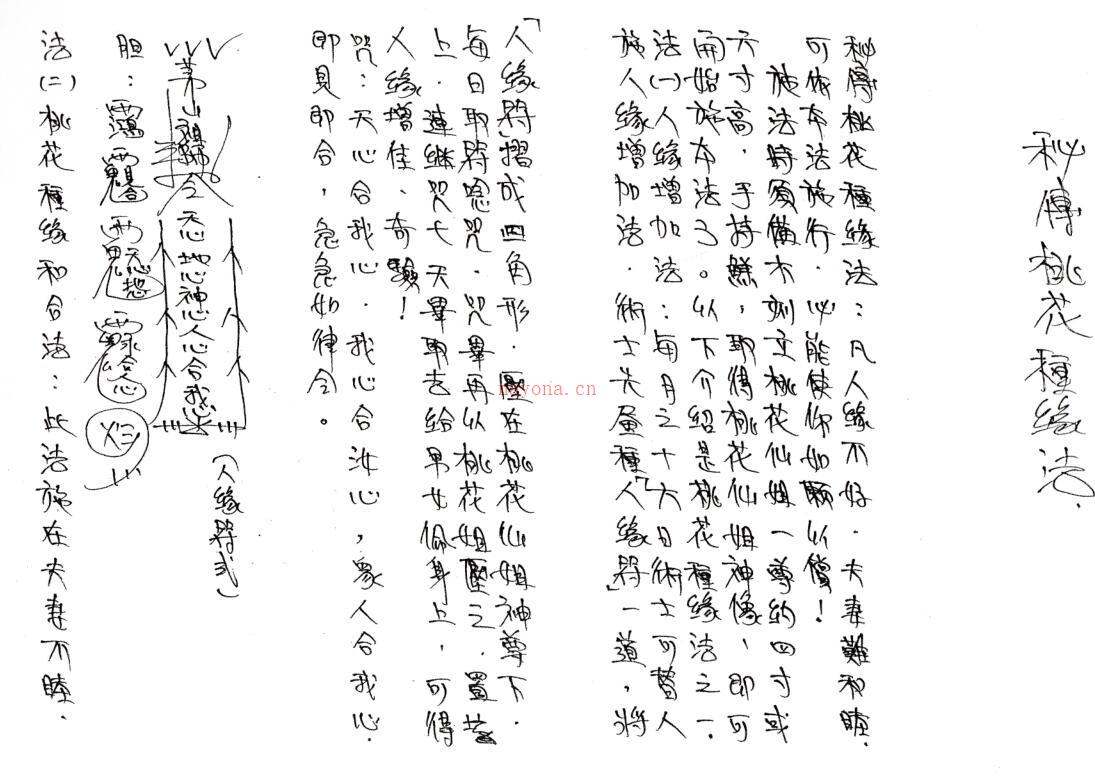 秘傳桃花種緣法.
秘傳桃花種緣法：凡人緣不好．夫妻難和睦．
可依本法施行．必能使你如願以償！
施法時須備木刻立桃花仙姐一尊約四寸或
六寸高．手持，取得桃花仙姐神像、即可
開始施本法了。以下介紹是桃花種緣法之一．
法㈠人緣增加法：每月之十六日術士可替人
施人緣增加法．術士先畫種「人緣符」一道，將
「人緣符」摺成四角形．壓在桃花仙姐神尊下．
每日取符唸咒．咒畢再以桃花姐壓之．置
上．連繼咒七天畢取去給男女佩身上，可得
人緣增佳、奇驗！
咒：天心合我心．我心合汝心，眾人合我心．
即見即合，急急如律令。
nayona.cn
（人緣符式）
天心地心神心人心合我
胆：
法㈡桃花種緣和合法：此法施在夫妻不睦．